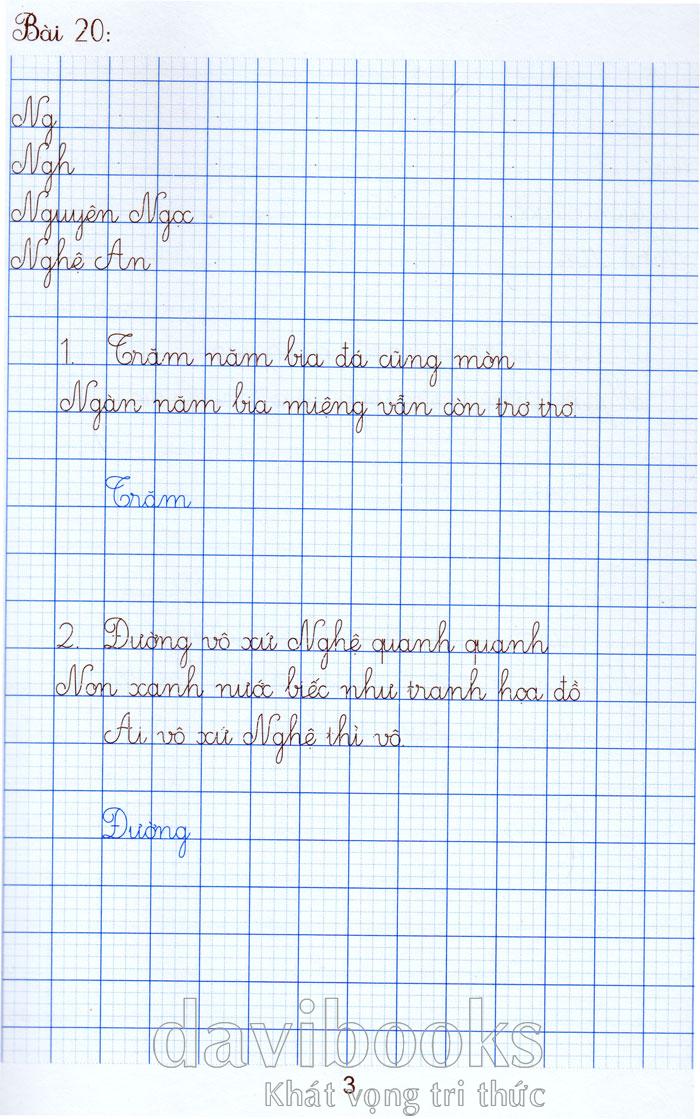 Bài 20:
Ng
Ngh
Nguyên Ngọc
Nghệ An
1. Trăm năm bia đá cũng mòn
Ngàn năm bia miệng vẫn còn trơ trơ.
Trăm
2. Đường vô xứ Nghệ quanh quanh
Non xanh nước biếc như tranh họa đồ
Ai vô xứ Nghệ thì vô.
Đường
davibooks
3
Khát vọng tri thức